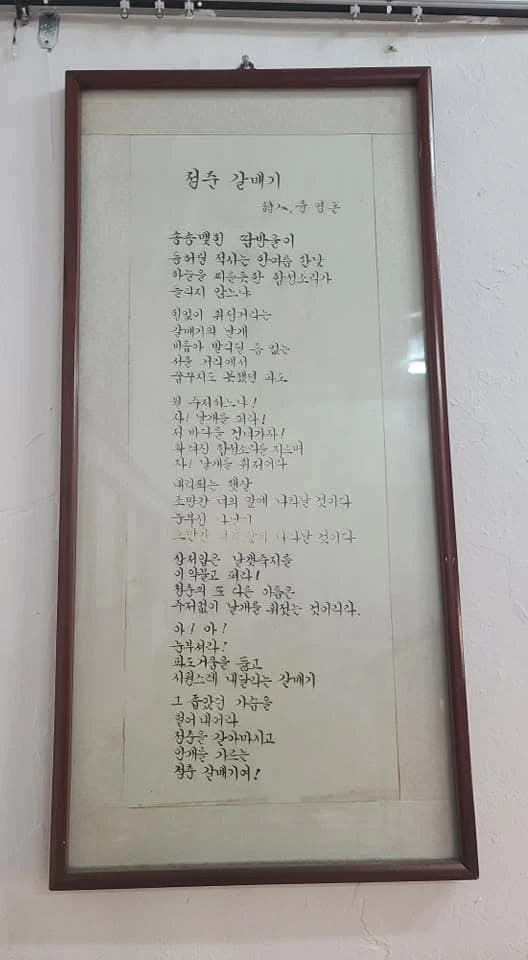 청춘 갈매기
詩人, 윤영돈
송송맺힌 땀방울이
동허월 적시는 한여름 한낮
하늘을 찌를듯한 함성소리가
들리지 않느냐
힘없이 휘청거리는
갈매기의 날개
비좁아 발디딜 틈 없는
사운 거리에서
꿈꾸지도 못했던 파도
뭘 주저하느냐!
자! 날개를 펴라!
저 바다를 건너가자!
함성소리를 지르며
자! 날개를 휘저어라
내리쬐는 햇살
조망간 너의 곁에 나타날 것이다
눈부신
조만간 나타날 것이다
상처입은 날갯죽지를
이 악물고 펴라!
청춘의 또 다른 이름은
주저없이 날개를 휘젓는 것이리라.
아! 아!
눈부셔라!
파도거품을 품고
시원스레 내달리는 갈매기
그 좁았던 가슴을
털어내거라
청춘을 갈아마시고
안개를 가르는
청춘 갈매기여!